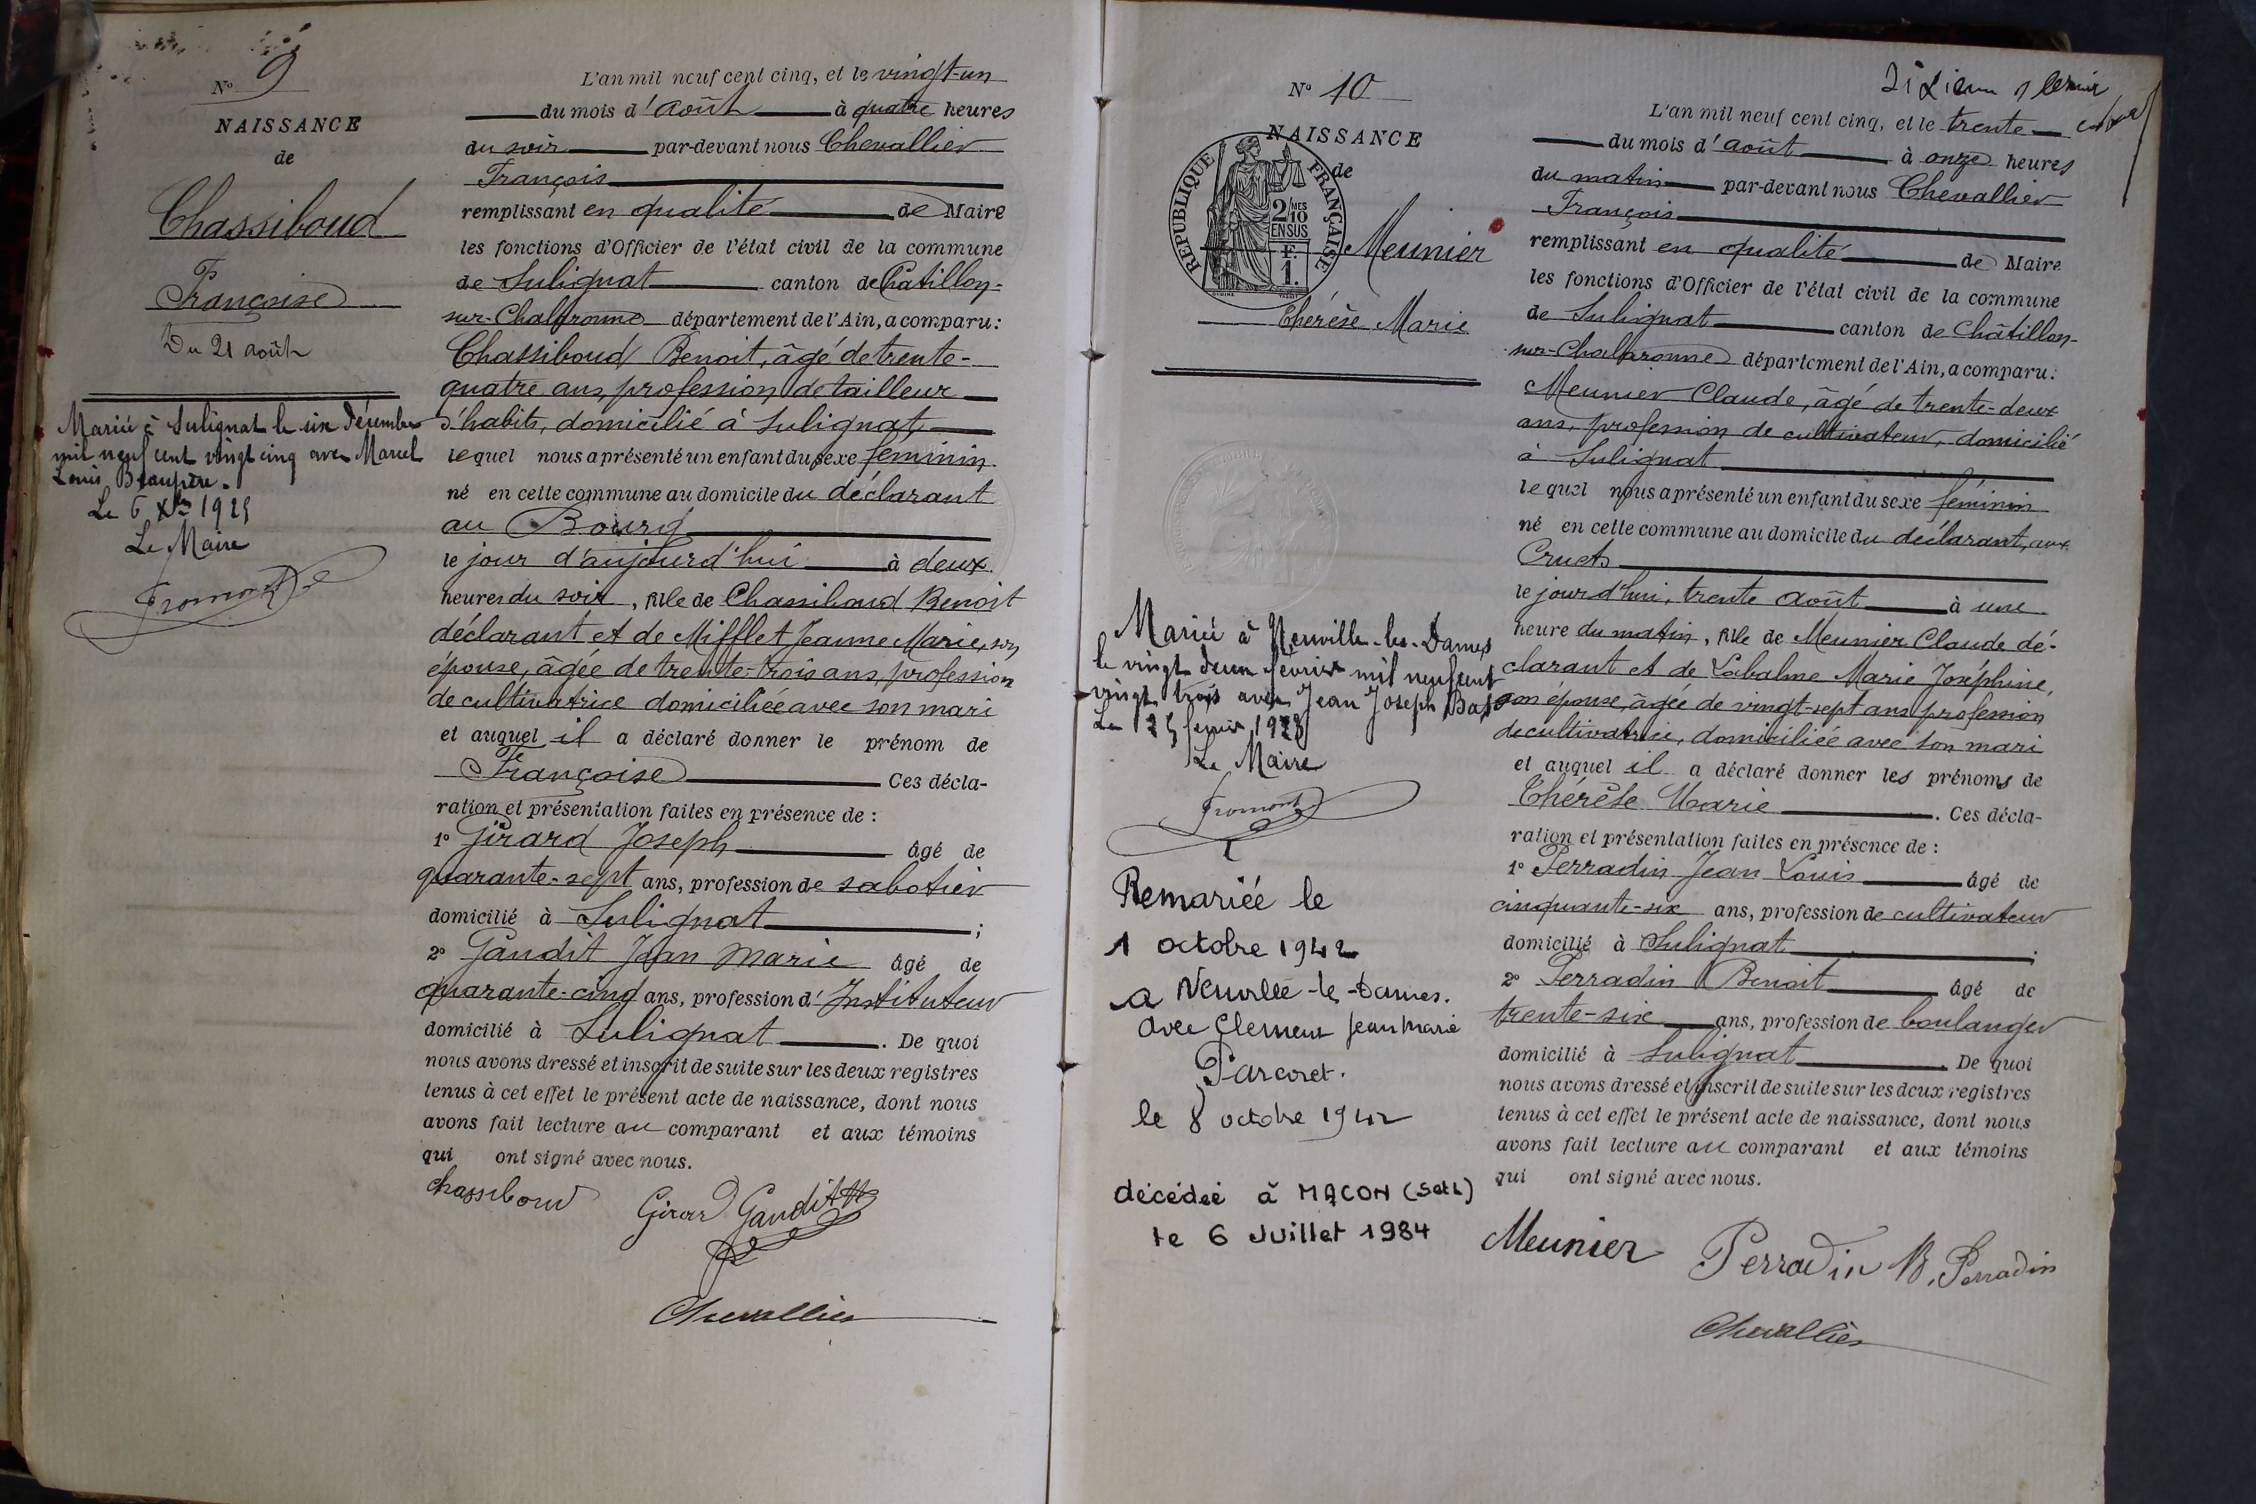 N° 9
NAISSANCE
de
Chassiboud
Françoise
Du 21 août
Mariée à Sulignat le six Décembre
mil neuf cent vingt cinq avec Marcel
Louis Beaupère.
Le 6 Xbre 1925
Le Maire
Fromont
L'an mil neuf cent cinq, et le vingt-un
du mois d'août à quatre heures
du soir par-devant nous Chevallier
François
remplissant en qualité de Maire
les fonctions d'Officier de l'état civil de la commune
de Sulignat canton de Châtillon-
sur-Chalaronne département de l'Ain, a comparu:
Chassiboud Benoit, âgé de trente-
quatre ans, profession de tailleur
d'habits, domicilié à Sulignat
lequel nous a présenté un enfant du sexe féminin
né en cette commune au domicile du déclarant
au Bourg
le jour d'aujourd'hui à deux
heures du soir, fille de Chassiboud Benoit
déclarant et de Mifflet Jeanne Marie, son
épouse, âgée de trente-trois ans, profession
de cultivatrice domiciliée avec son mari
et auquel il a déclaré donner le prénom de
Françoise Ces décla-
ration et présentation faites en présence de :
1° Girard Joseph âgé de
quarante-sept ans, profession de sabotier
domicilié à Sulignat ;
2° Gaudit Jean Marie âgé de
quarante-cinq ans, profession d'Instituteur
domicilié à Sulignat . De quoi
nous avons dressé et inscrit de suite sur les deux registres
tenus à cet effet le présent acte de naissance, dont nous
avons fait lecture au comparant et aux témoins
qui ont signé avec nous.
Chassiboud Girard Gaudit
Chevallier
N° 10
NAISSANCE
de
RÉPUBLIQUE FRANÇAISE
2/10 MES
EN SUS
F.
1.
Meunier
Thérèse Marie
Mariée à Neuville-les-Dames
le vingt deux février mil neuf cent
vingt trois avec Jean Joseph
Le 25 février 1923
Le Maire
Fromont
Remariée le
1 octobre 1942
a Neuville-les-Dames.
avec Clément Jean Marie
Parcoret.
le 8 octobre 1942
décédée à MACON (S et L)
le 6 Juillet 1984
L'an mil neuf cent cinq, et le trente
du mois d'août à onze heures
du matin par-devant nous Chevallier
François
remplissant en qualité de Maire
les fonctions d'Officier de l'état civil de la commune
de Sulignat canton de Châtillon-
sur-Chalaronne département de l'Ain, a comparu:
Meunier Claude, âgé de trente-deux
ans, profession de cultivateur, domicilié
à Sulignat
lequel nous a présenté un enfant du sexe féminin
né en cette commune au domicile du déclarant, aux
Cruets
le jour d'hui, trente août à une
heure du matin, fille de Meunier Claude dé-
clarant et de Labalme Marie Joséphine,
son épouse, âgée de vingt-sept ans, profession
de cultivatrice, domiciliée avec son mari
et auquel il a déclaré donner les prénoms de
Thérèse Marie . Ces décla-
ration et présentation faites en présence de :
1° Perradin Jean Louis âgé de
cinquante-six ans, profession de cultivateur
domicilié à Sulignat ;
2° Perradin Benoit âgé de
trente-six ans, profession de boulanger
domicilié à Sulignat . De quoi
nous avons dressé et inscrit de suite sur les deux registres
tenus à cet effet le présent acte de naissance, dont nous
avons fait lecture au comparant et aux témoins
qui ont signé avec nous.
Meunier Perradin B. Perradin
Chevallier